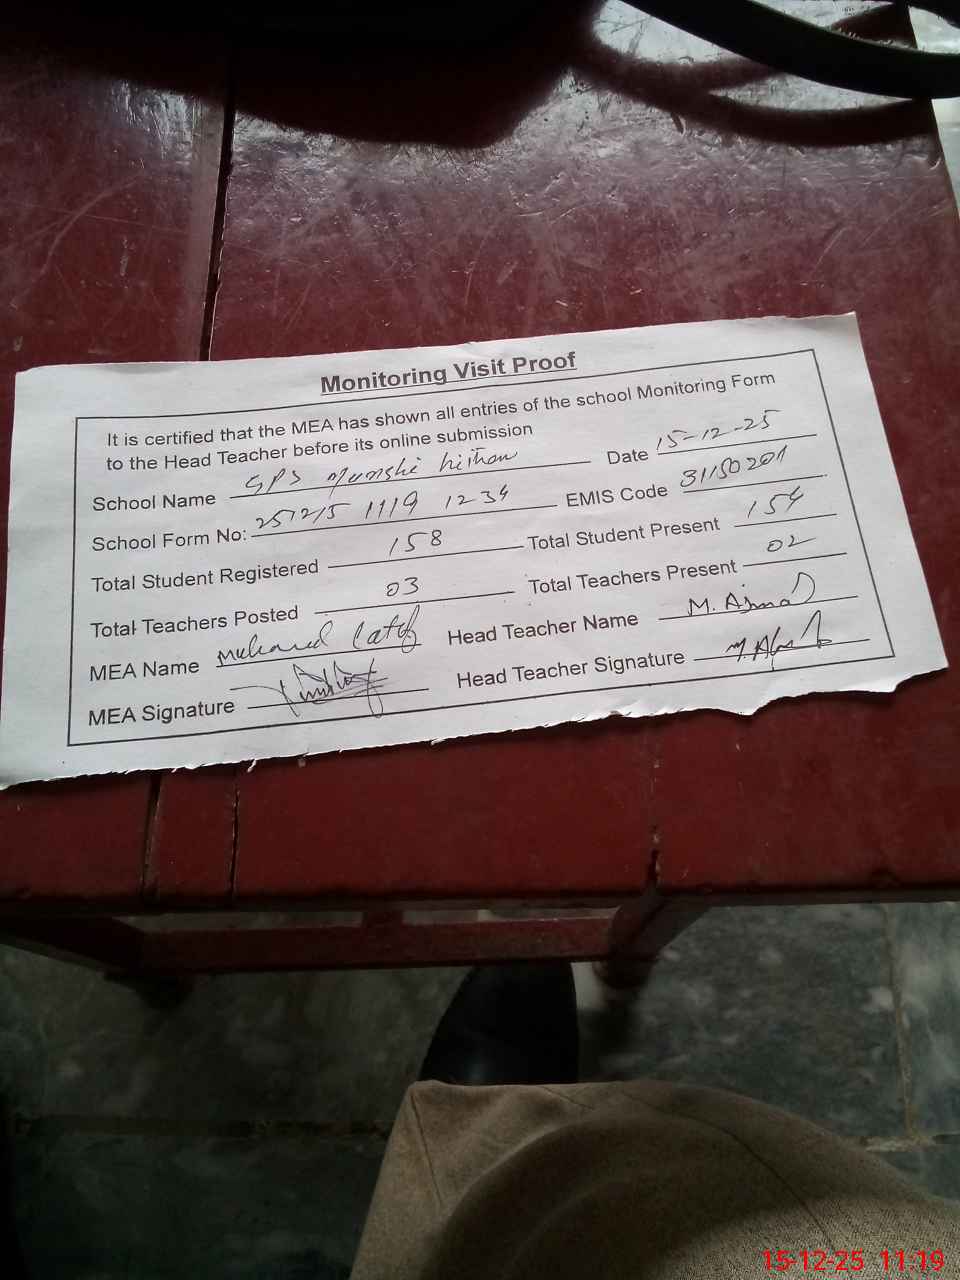 Monitoring Visit Proof
It is certified that the MEA has shown all entries of the school Monitoring Form
to the Head Teacher before its online submission
School Name GPS Munshi Date 15-12-25
School Form No: 251215 1119 1234 EMIS Code 31150201
Total Student Registered 158 Total Student Present 154
Total Teachers Posted 03 Total Teachers Present 02
MEA Name Muhamed Latif Head Teacher Name M. Ajmal
MEA Signature Head Teacher Signature
15-12-25 11:19